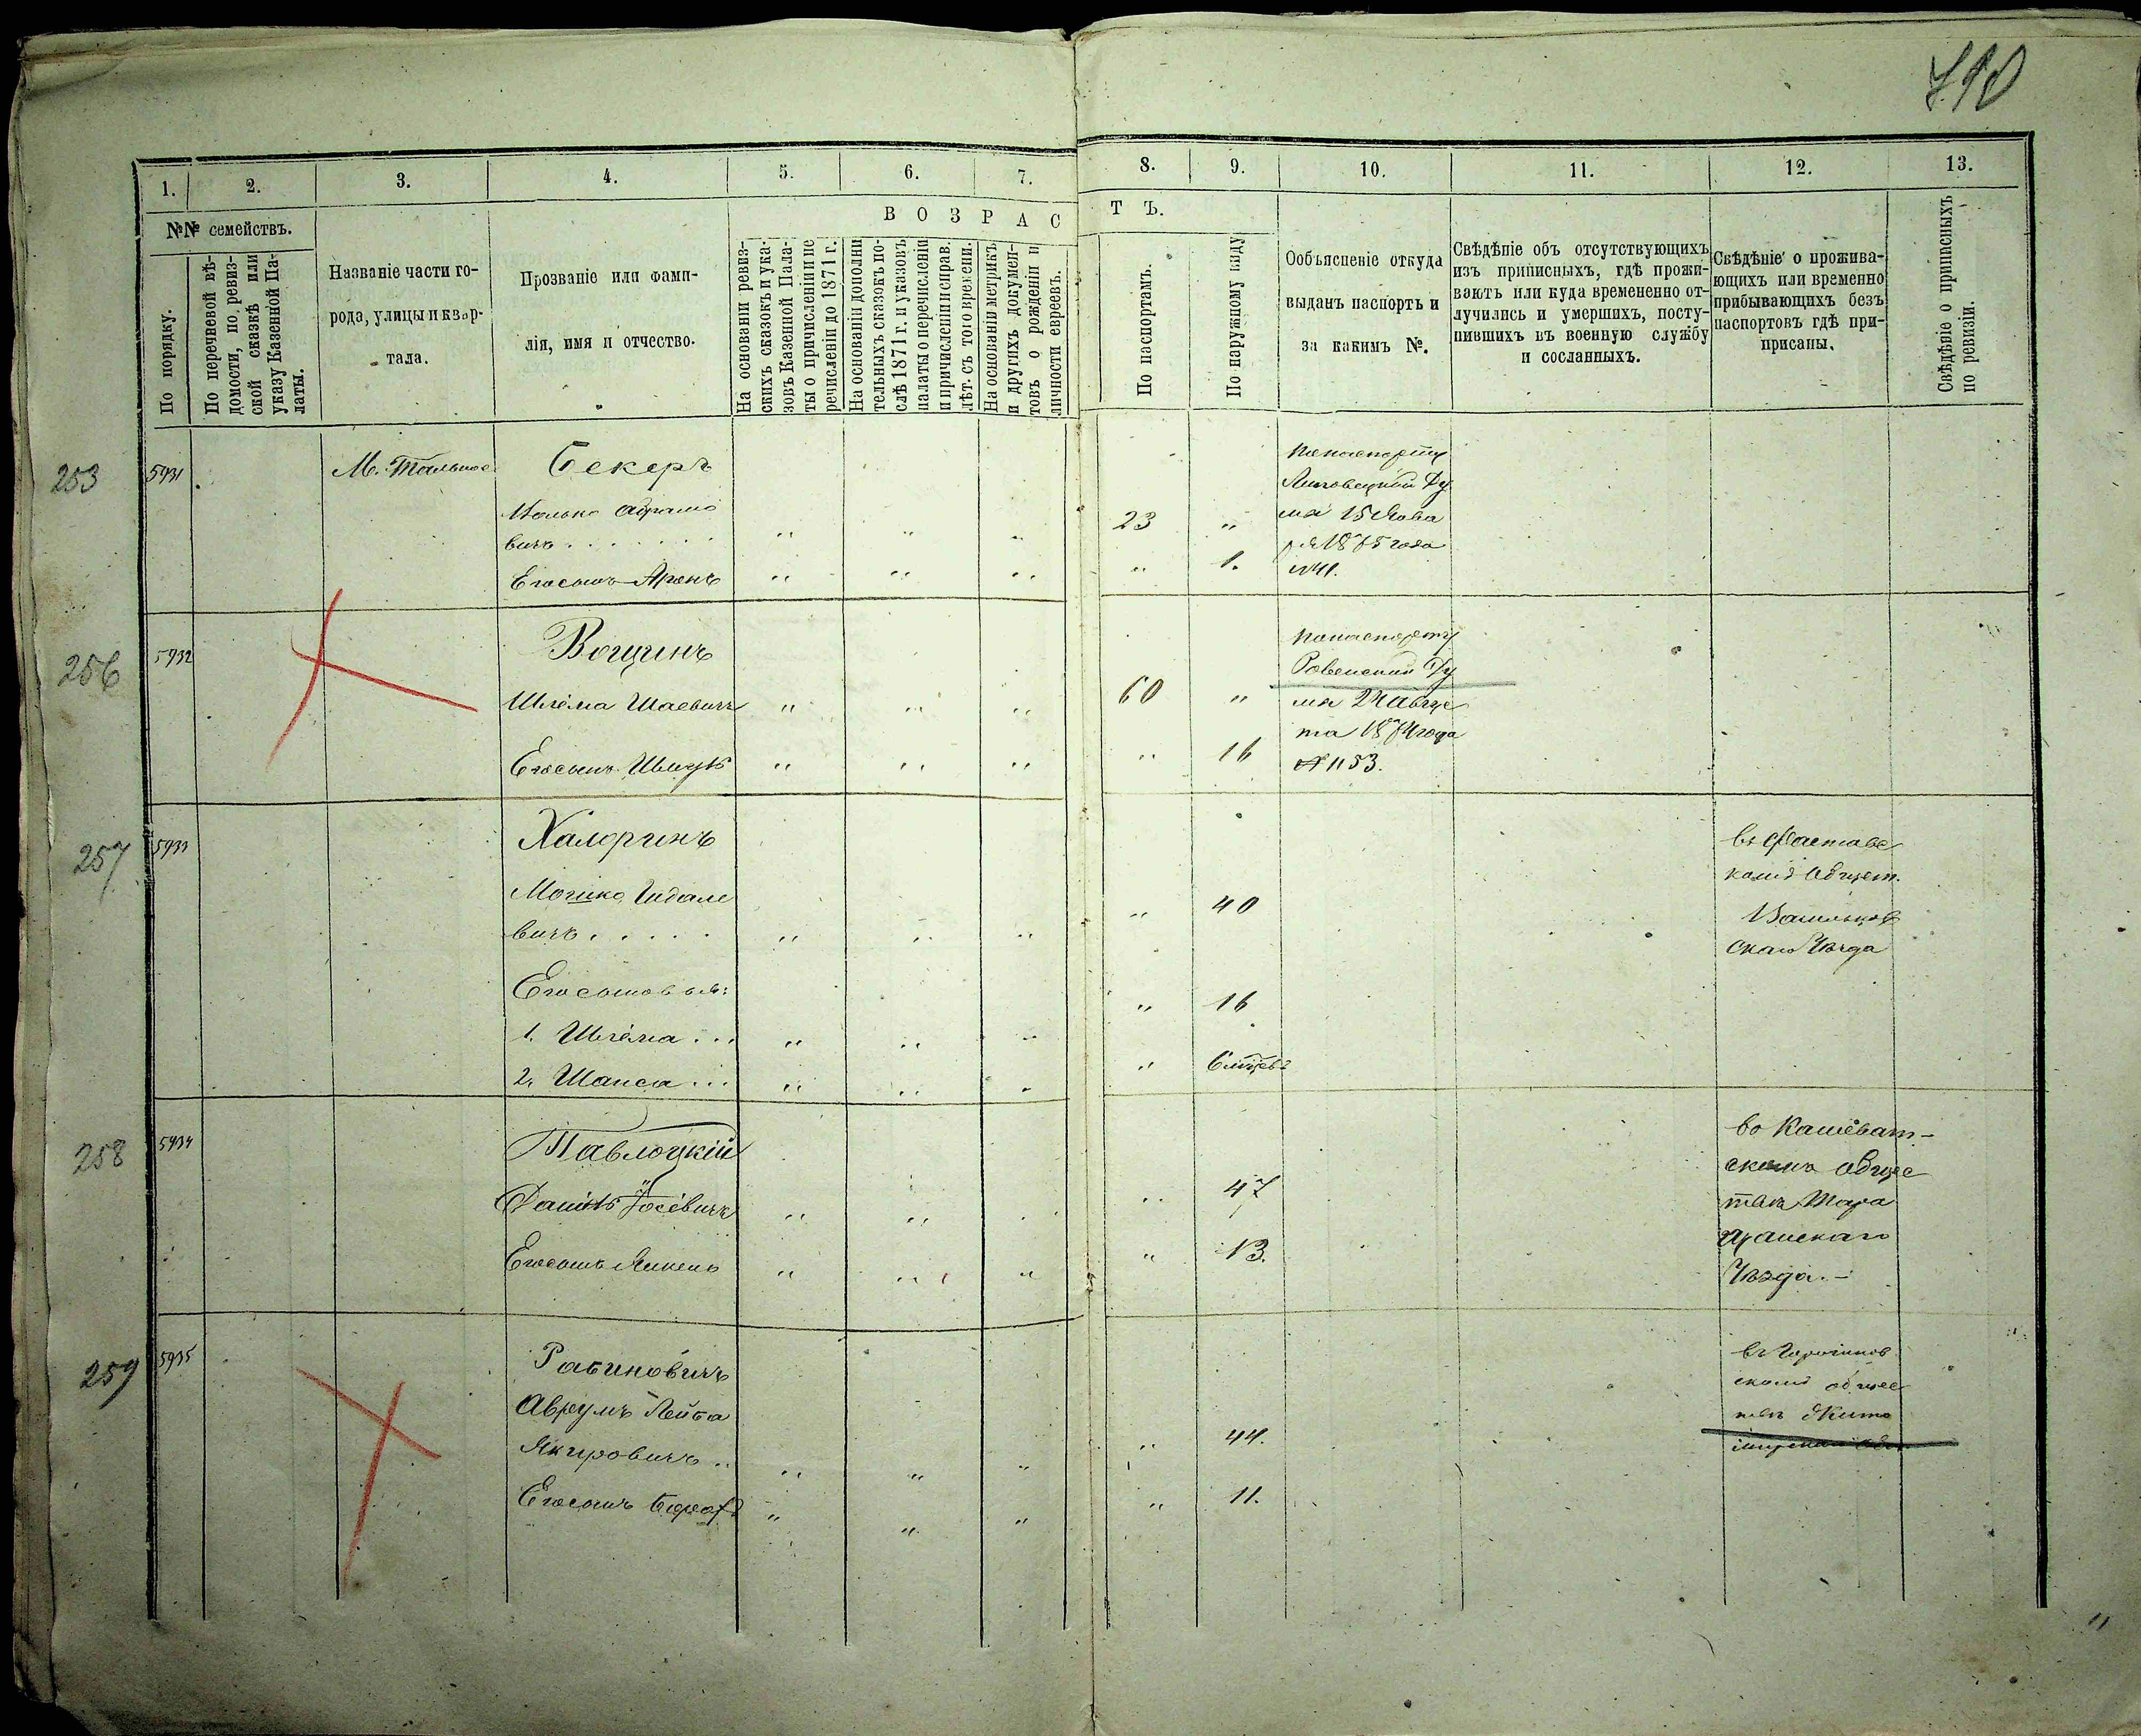 790
1. 2. 3. 4. 5. 6. 7. 8. 9. 10. 11. 12. 13.
№№ семействъ.
В О З Р А С Т Ъ.
По порядку.
По перечневой вѣ-
домости, по ревиз-
ской сказкѣ или
указу Казенной Па-
латы.
Названіе части го-
рода, улицы и квар-
тала.
Прозваніе или фами-
лія, имя и отчество.
На основаніи ревиз-
скихъ сказокъ и ука-
зовъ Казенной Пала-
ты о причисленіи и пе
речисленіи до 1871 г.
На основаніи дополни
тельныхъ сказокъ по-
слѣ 1871 г. и указовъ
палаты о перечисленіи
и причисленіи и справ.
лѣт. съ того времени.
На основаніи метрикъ
и другихъ докумен-
товъ о рожденіи и
личности евреевъ.
По паспортамъ.
По наружному виду
Ообъясненіе откуда
выданъ паспортъ и
за какимъ №.
Свѣдѣніе объ отсутствующихъ
изъ приписныхъ, гдѣ прожи-
ваютъ или куда времененно от-
лучились и умершихъ, посту-
пившихъ въ военную службу
и сосланныхъ.
Свѣдѣніе о прожива-
ющихъ или временно
прибывающихъ безъ
паспортовъ гдѣ при-
писаны.
Свѣдѣніе о приписныхъ
по ревизіи.
253 5931 М. Тальное Бекеръ
Абрамо
вичъ . . . . . . . " " " 23 "
Егосынъ Аронъ " " " " 1.
попаспорту
Липовецкой Ду
мы 15
1875 года
№41.
256 5932 Вощинъ
Шлема Шаевичъ " " " 60 "
Егосынъ Шмуль " " " " 16
попаспорту
Ровенской Ду
мы 24 Авгус
та 1874 года
№1153.
257 5933
Мошко Гидале
вичъ . . . . . " " " " 40
Егосыновья:
1. Шлема . . . " " " " 16
2. . . . " " " " 6
въ Фастовс
комъ Общест.
Васильков
скаго Уѣзда
258 5934 Павлоцкій
Іосевичъ " " " " 47
Егосынъ Янкель " " " " 13.
во Кашеват-
скомъ общес
твѣ Тара
щанскаго
Уѣзда. -
259 5935 Рабиновичъ
Аврумъ Лейба
.. " " " " 44.
Егосынъ " " " " 11.
скомъ общес
твѣ Жито